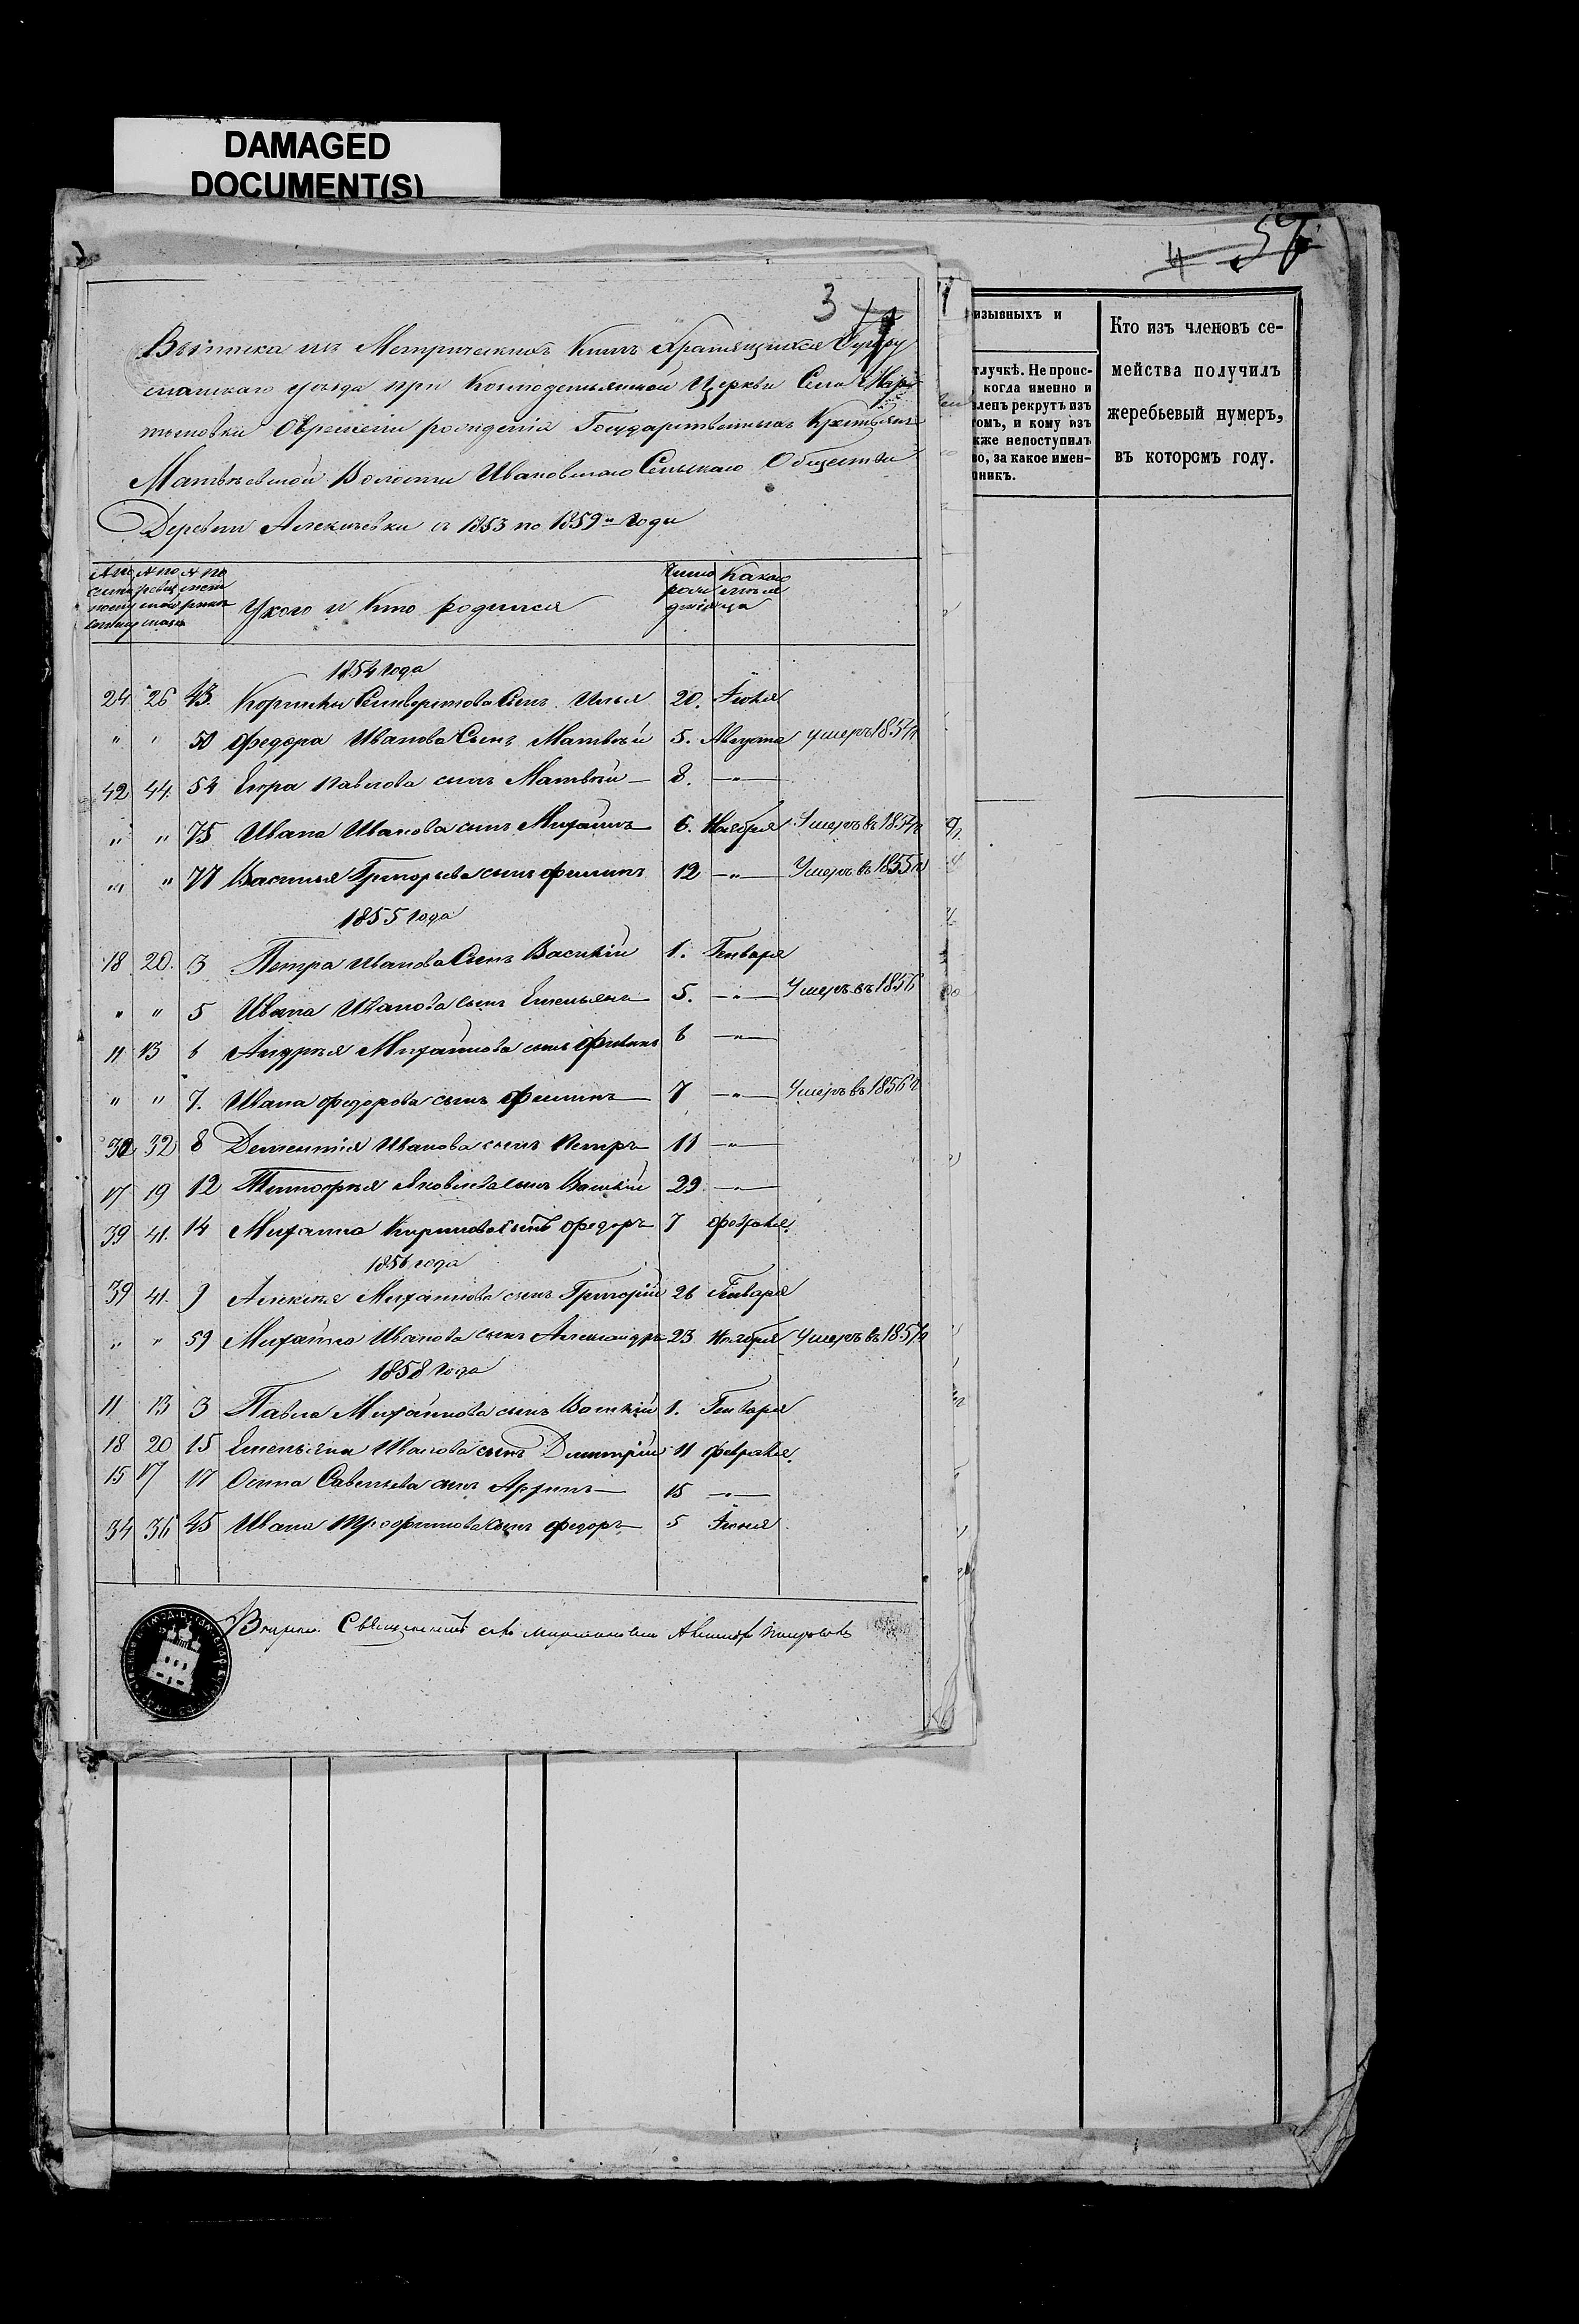 DAMAGED
DOCUMENT(S)
57
4
3
Выписка изъ Метрическихъ Книгъ Хранящихся Бугуру
сланскаго уѣзда при Космодемьянской Церкви Села Мар
тыновки О времени рожденія Государственныхъ Крестьянъ
Матвѣевской Волости Ивановскаго Сельскаго Общества
Деревни Алексѣевки съ 1853 по 1859й Годы
У кого и Кто родился
Число рож денія
Какого месяца
1854 года
24 26 43. Корнилы Селиверстова Сынъ Илья 20. Іюля
" " 50 Федора Иванова Сынъ Матвѣй 5. Августа умеръ 1854г.
42 44. 54 Егора Павлова сынъ Матвѣй — 8. — " —
" " 75 Ивана Иванова сынъ Михаилъ 6. Ноября Умеръ въ 1854г
" " 77 Василья Григорьева сынъ Филипъ 12 — " — Умеръ въ 1855г
1855 года
18 20. 3 Петра Иванова Сынъ Василій 1. Генваря
" " 5 Ивана Иванова сынъ Емельянъ 5. — " — Умеръ въ 1856
11 13 6 Андрея Михайлова сынъ 6 — " —
" " 7. Ивана Федорова сынъ Филипъ — 7 — " — Умеръ въ 1856г
30 32 8 Дементія Иванова сынъ Петръ 11 — " —
17 19 12 Тимофея Яковлева сынъ Василій 29 — " —
39 41. 14 Михаила Кирилова сынъ Федоръ 7 Февраля.
1856 года
39 41. 9 Алексѣя Михайлова сынъ Григорій 26 Генваря
" " 59 Михайла Иванова сынъ Александръ 23 Ноября Умеръ въ 1857г
1858 Года
11 13 3 Павла Михайлова сынъ Василій 1. Генваря
18 20 15 Емельяна Иванова сынъ Димитрій 11 Февраля.
15 17 17 Осипа Савельева сынъ — 15 — " —
34 36 45 Ивана Трофимова сынъ Федоръ — 5 Іюня
Священникъ села Мартыновки
изывныхъ и
тлучкѣ. Не проис-
когда именно и
вленъ рекрутъ изъ
омъ, и кому изъ
кже непоступилъ
во, за какое имен-
никъ.
Кто изъ членовъ се-
мейства получилъ
жеребьевый нумеръ,
въ которомъ году.